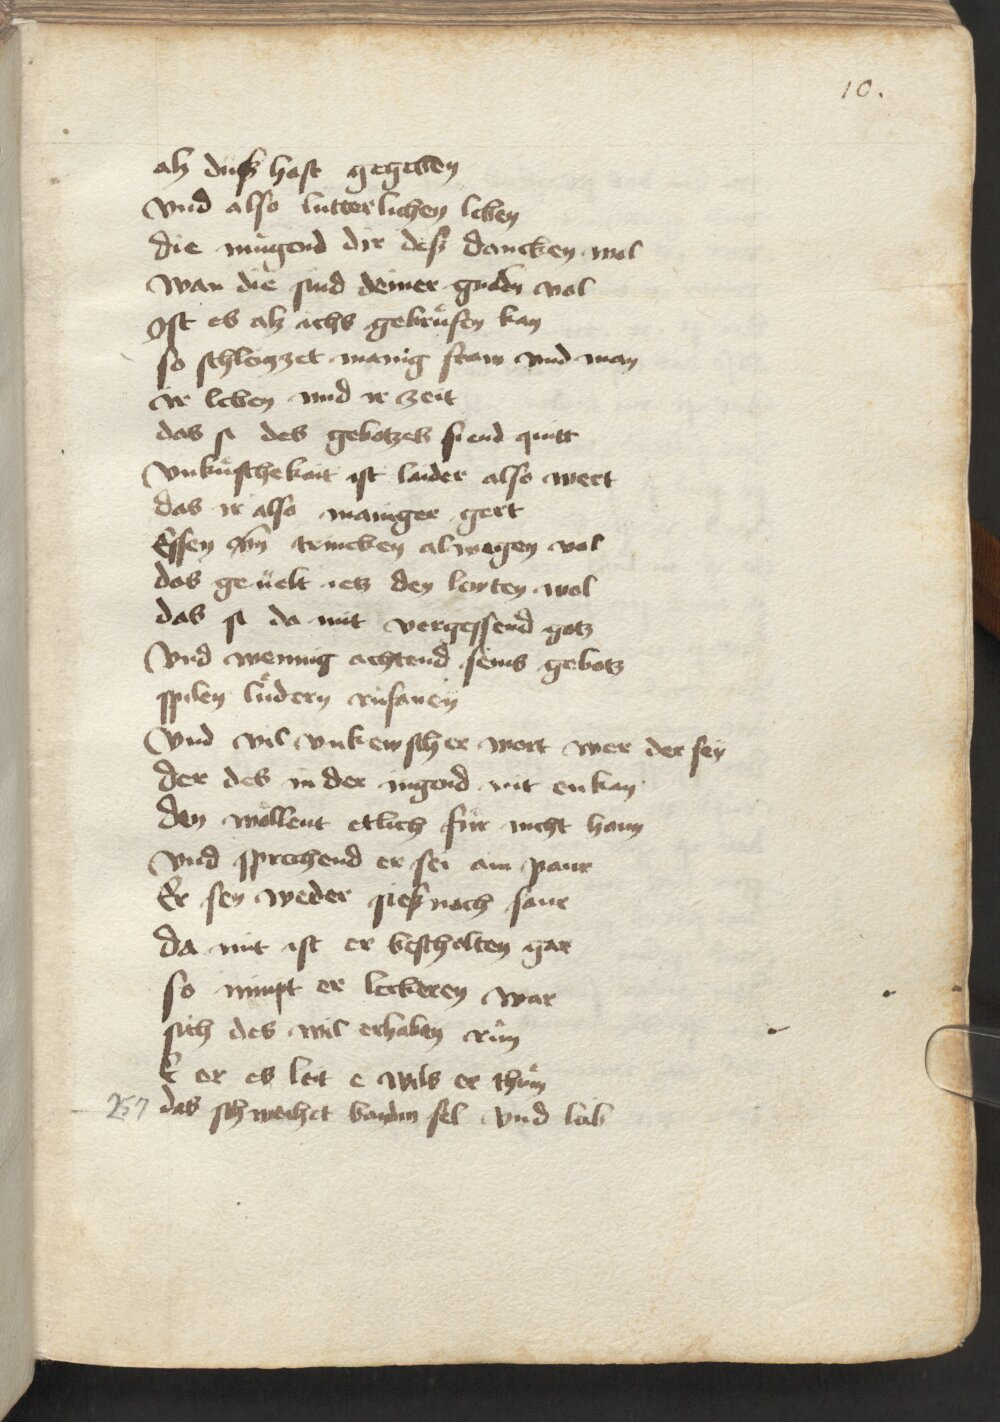 10.
alz duß hast gegeben
Vnd also lutterlichen leben
die mügend dir deß dancken wol
Wan die sind deiner gnaden vol
Ist es alz achs gebrüsen kan
so schleizzet manig fraw vnd man
ir leben vnd ir zeit
das si des gebotzes siend quitt
Vnküschekait ist laider also wert
das ir also maniger gert
Essen vnd trincken alwegen vol
das geuelt ietz den leyten wol
das si da mit vergessend gotz
Vnd wennig achtend seins gebotz
spilen lůdern rufaneÿ
Vnd vil vnkewscher wort wer der seÿ
der des in der iugend nit enkan
den wöllent etlich für nicht hann
Vnd sprechend er sei ain paur
Er sey weder sieß nach saur
da mit ist er bescholten gar
so nimpt er leckeren war
sich des wil erhaben růn
E er es leit e wils er thůn
257 das schwechet baiden sel vnd leib